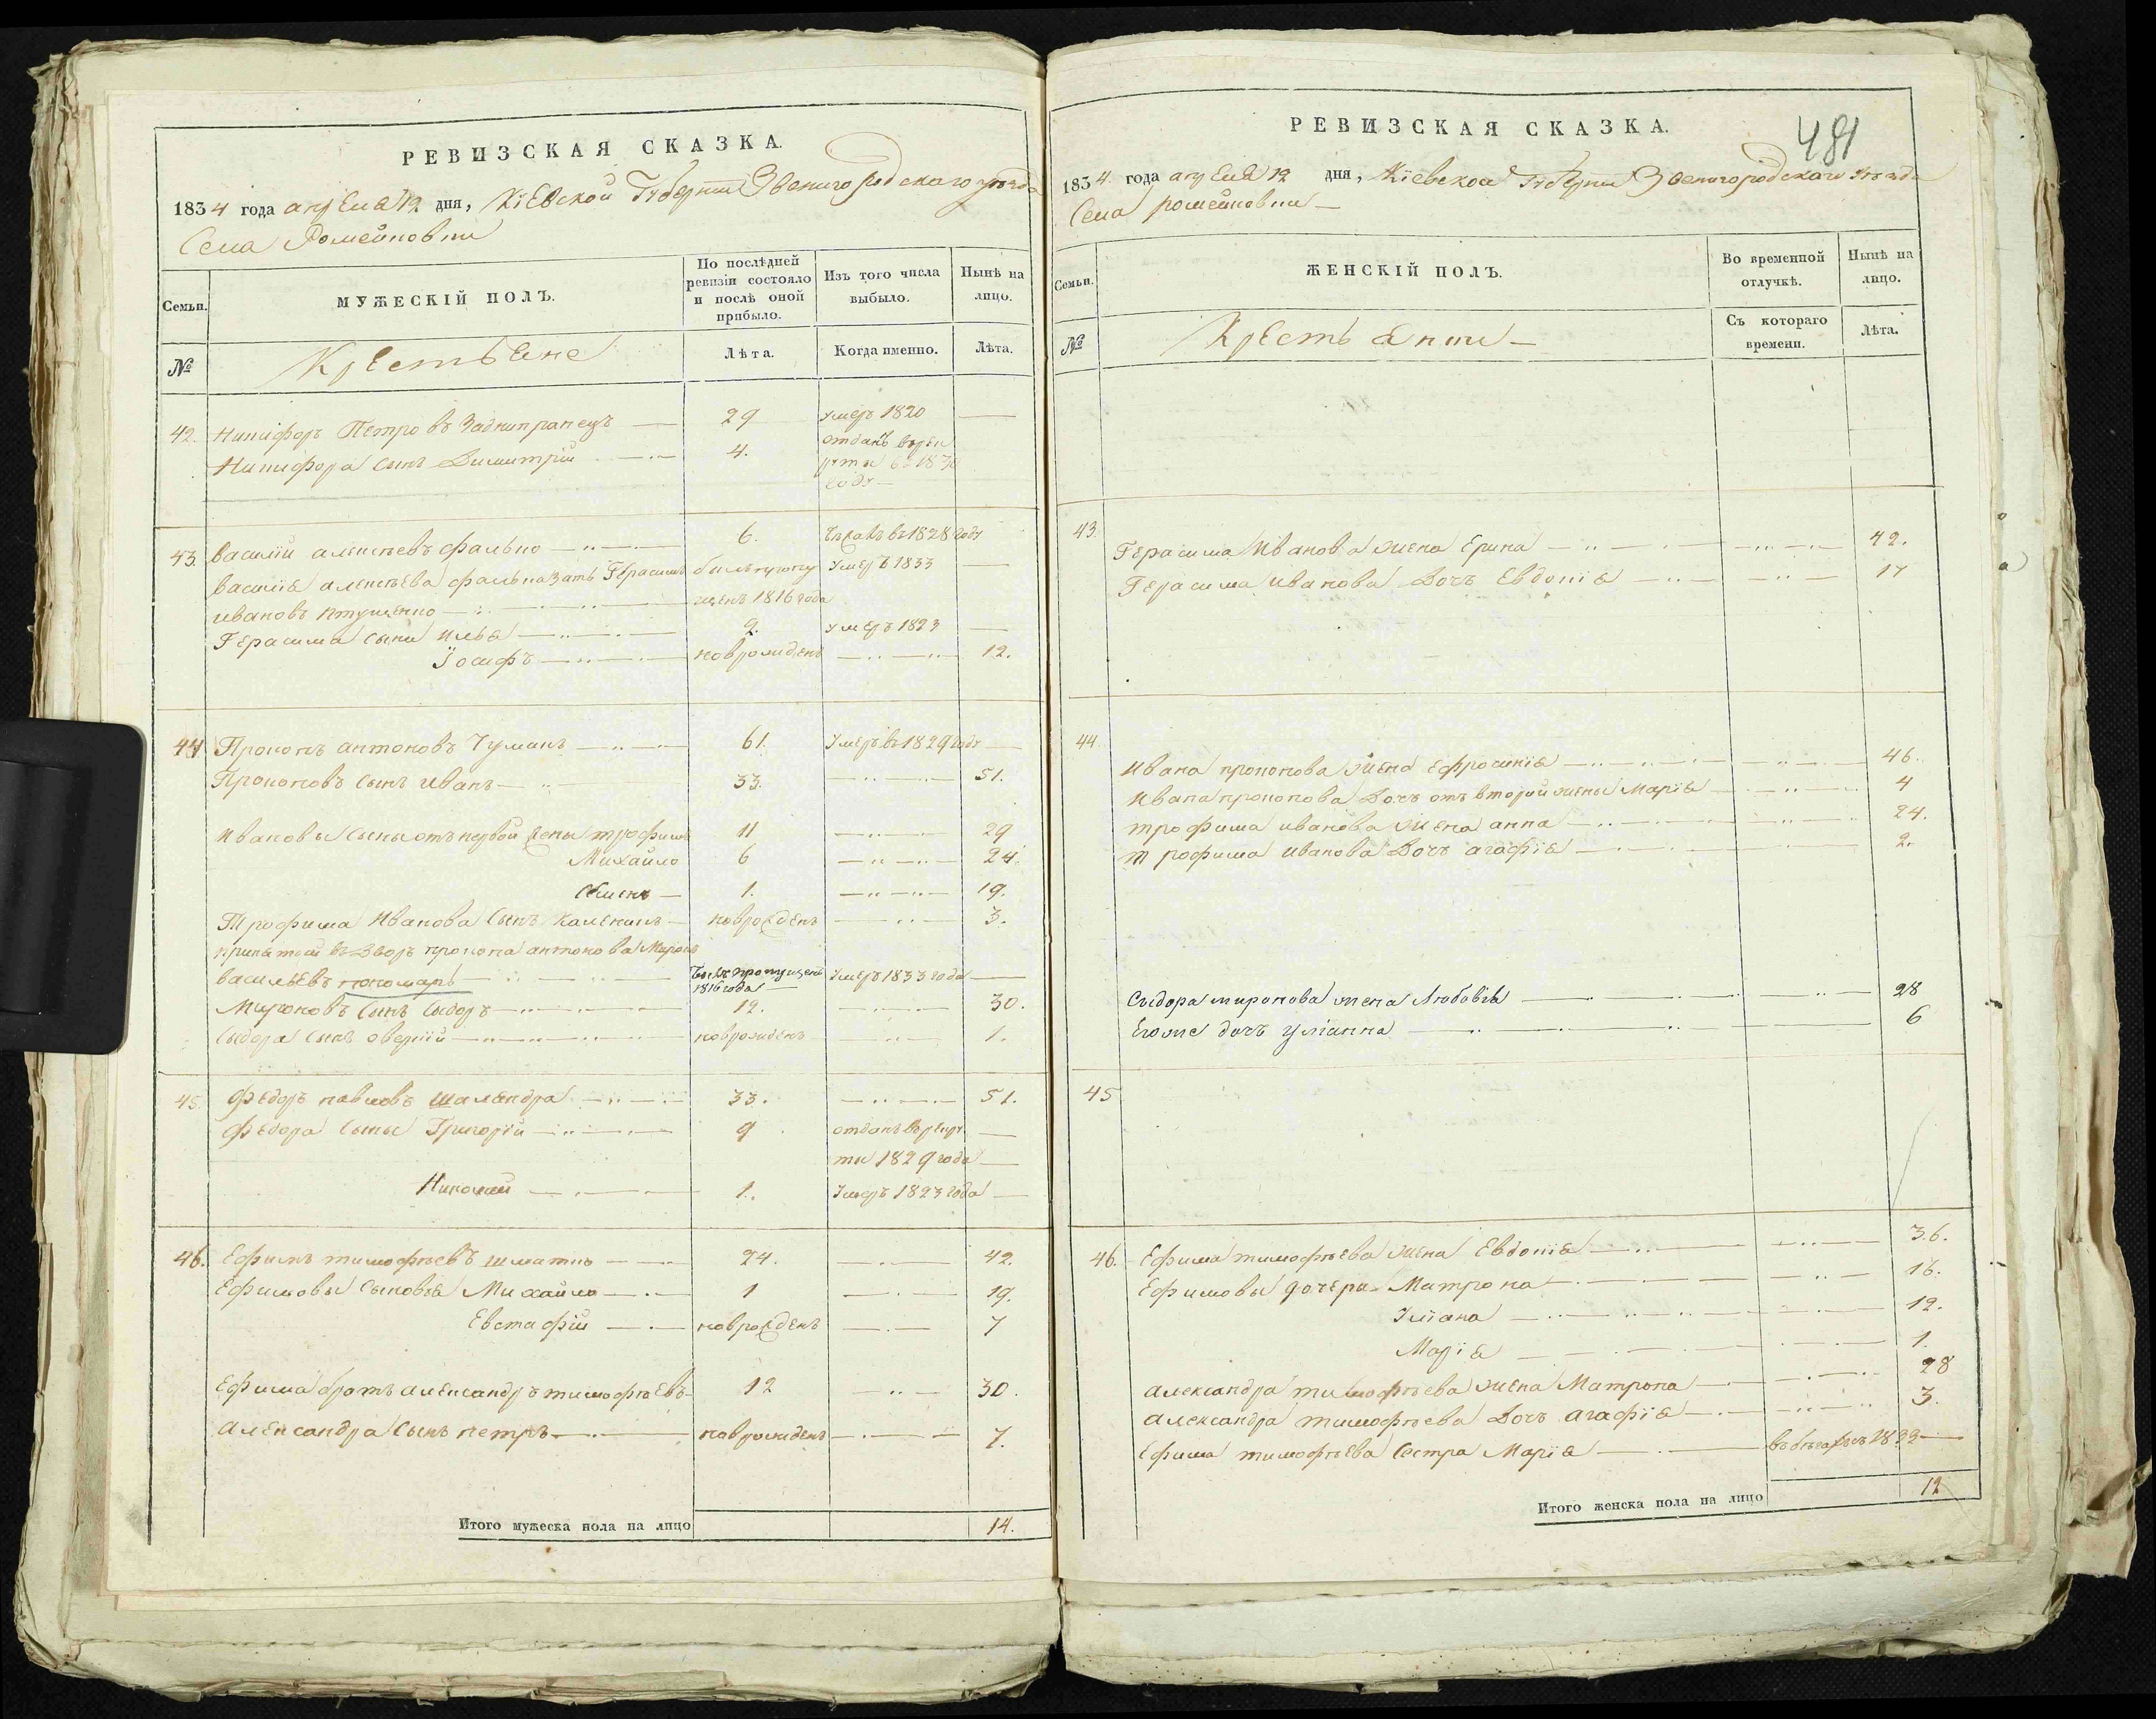 РЕВИЗСКАЯ СКАЗКА.
1834 года апреля 12 дня, Кіевской Губерніи Звенигородскаго уѣзда
Села Ромейновки
Семьи. МУЖЕСКІЙ ПОЛЪ. По послѣдней ревизіи состояло и послѣ оной прибыло. Изъ того числа выбыло. Нынѣ на лицо.
№ Крестьяне Лѣта. Когда именно. Лѣта.
42. Никифоръ Петровъ Заднипранецъ — 29 умеръ 1820 —
Никифора сынъ Димитрій — 4. отданъ врекруты въ 1830 году —
43. Василій алексѣевъ фалько — 6. Бежалъ въ 1828 году
Василія алексѣева фалька зать Герасимъ былъ пропущенъ 1816 года умеръ 1833 —
ивановъ птущенко —
Герасима сыни илья — 2. умеръ 1823 —
Іосифъ — новрожденъ — 12.
44 Прокопъ антоновъ Чуманъ — 61. умеръ въ 1829 году —
Прокоповъ сынъ иванъ — 33. — 51.
ивановы сыны отъ первой жены трофимъ 11 — 29
Михайло 6 — 24.
Семенъ — 1. — 19.
Трофима иванова сынъ Каленикъ — новрожденъ — 3.
принятой въ дворъ прокопа антонова Миронъ
васильевъ пономаръ — Былъ пропущенъ 1816 года умеръ 1833 года —
Мироновъ сынъ сыдоръ — 12. — 30.
Сыдора сынъ оверкій — новрожденъ — 1.
45 Федоръ павловъ шаландра — 33. — 51.
Федора сыны Григорій — 9. отданъ врекруты 1829 года —
Николай — 1. умеръ 1823 года —
46. Ефимъ тимофѣевъ шматко — 24. — 42.
Ефимовы сыновья Михайло — 1 — 19.
Евстафій — новрожденъ — 7
Ефима братъ александръ тимофѣевъ 12 — 30.
александра сынъ петръ — новрожденъ — 7.
Итого мужеска пола на лицо 14.
РЕВИЗСКАЯ СКАЗКА.
481
1834 года апреля 12 дня, Кіевской Губерніи Звенигородскаго уѣзда
Села ромейновки —
Семьи. ЖЕНСКІЙ ПОЛЪ. Во временной отлучкѣ. Нынѣ на лицо.
№ Крестьянки — Съ котораго времени. Лѣта.
43. Герасима иванова жена Ерина — 42.
Герасима иванова дочъ Евдокія — 17
44 ивана прокопова жена ефросинія — 46.
ивана прокопова дочъ отъ второй жены Марія — 4
трофима иванова жена анна — 24.
трофима иванова дочъ агафія — 2.
Сидора миронова жена Любовія — 28
Егоже дочъ уліанна — 6
45
46. Ефима тимофѣева жена Евдокія — 36.
Ефимовы дочери Матрона — 16.
Уліана — 12.
Марія — 1.
александра тимофѣева жена Матрона — 28
александра тимофѣева дочъ агафія — 3.
Ефима тимофѣева сестра Марія — въ бѣгахъ съ 1822 —
Итого женска пола на лицо 12